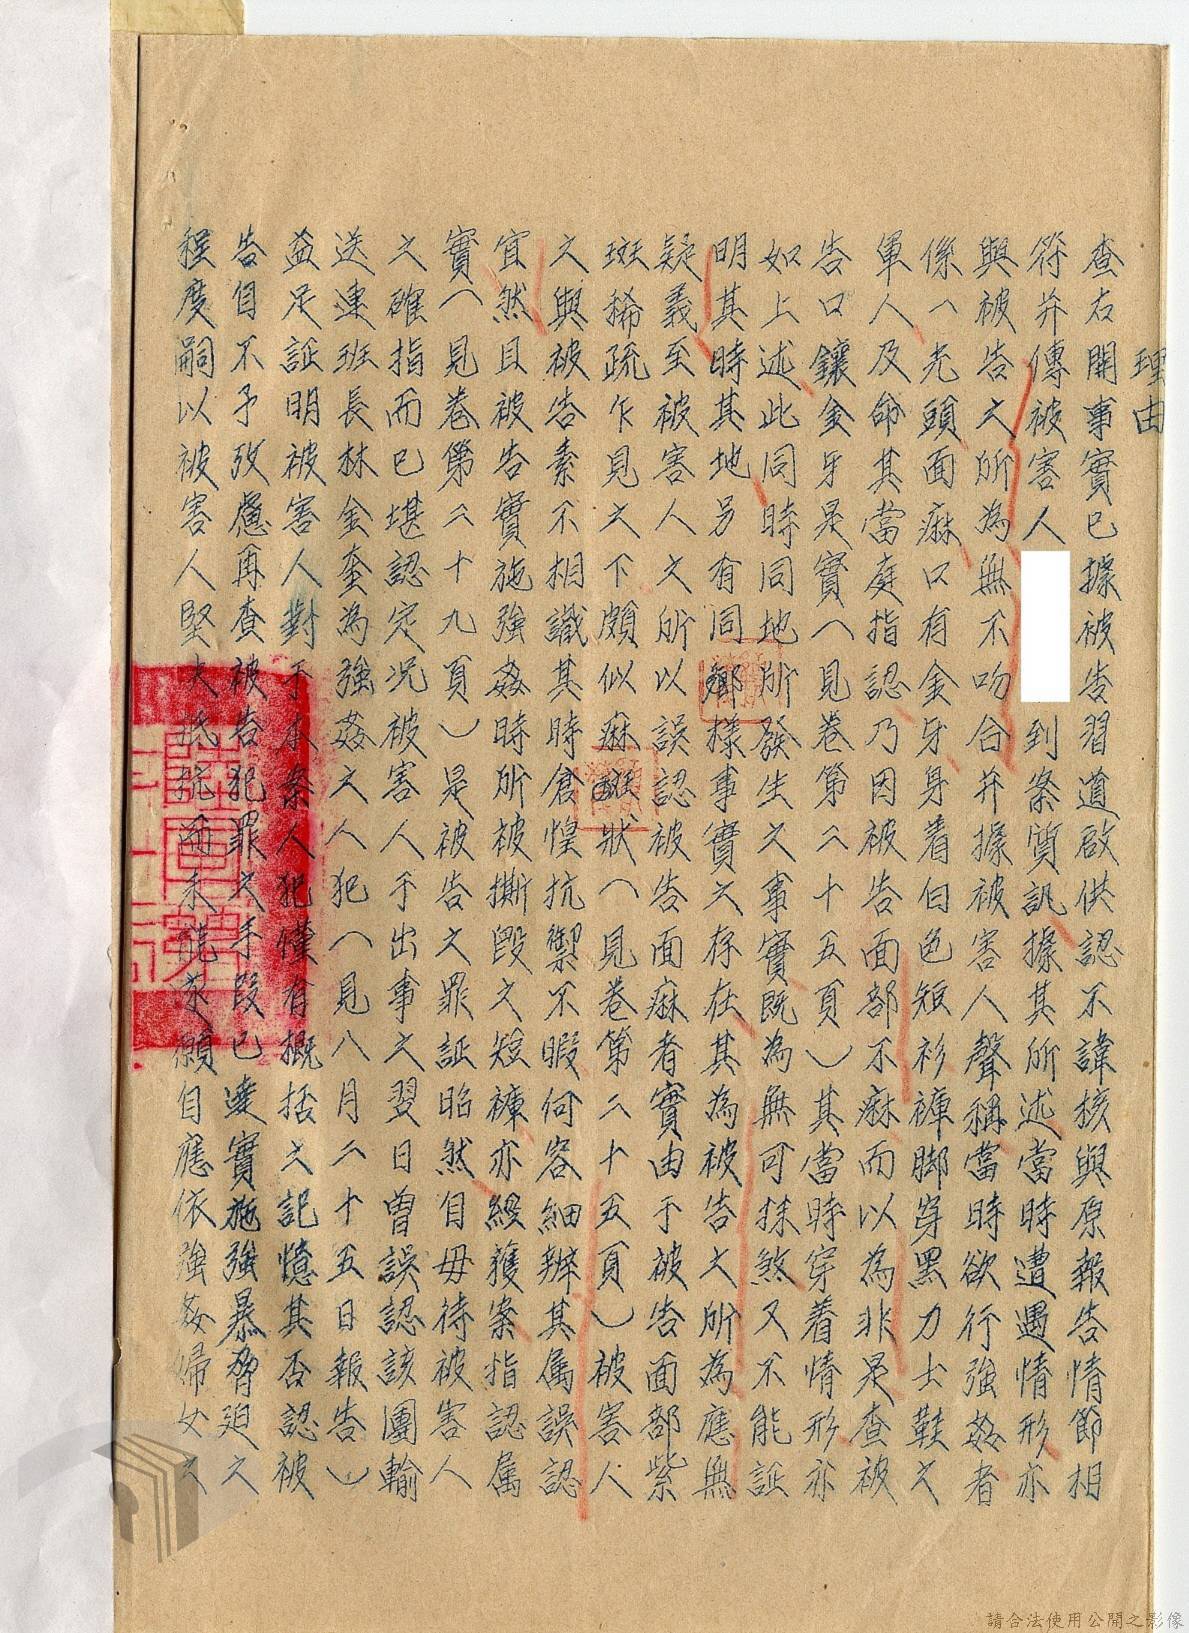 理由
查右開事實已據被告習道啟供認不諱核與原報告情節相
符并傳被害人 到案質訊據其所述當時遭遇情形亦
與被告之所為無不吻合并據被害人聲稱當時欲行強姦者
係一光頭面麻口有金牙身着白色短衫褲脚穿黑力士鞋之
軍人及命其當庭指認乃因被告面部不麻而以為非是查被
告口鑲金牙是實(見卷第二十五頁)其當時穿着情形亦
如上述此同時同地所發生之事實既為無可抹煞又不能証
明其時其地另有同鄉樣事實之存在其為被告之所為應無
疑義至被害人之所以誤認被告面麻者實由于被告面部紫
斑稀疏乍見之下頗似麻斑狀(見卷第二十五頁)被害人
之與被告素不相識其時倉惶抗禦不暇何容細辨其属誤認
宜然且被告實施強姦時所被撕毀之短褲亦經獲案指認属
實(見卷第二十九頁)是被告之罪証昭然自毋待被害人
之確指而已堪認定况被害人于出事之翌日曾誤認該團輸
送連班長林金奎為強姦之人犯(見八月二十五日報告)
益足証明被害人對于本案人犯僅有概括之記憶其否認被
告自不予攷慮再查被告犯罪之手段已達實施強暴脅迫之
程度嗣以被害人堅決抵抗而未能求償自應依強姦婦女之
請合法使用公開之影像